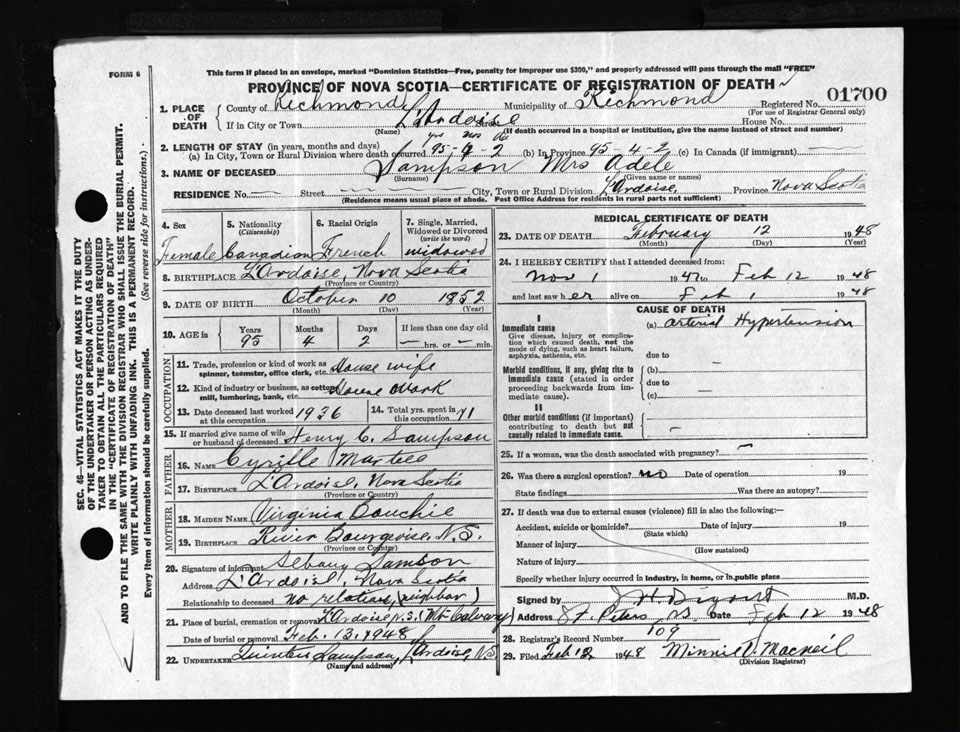 FORM 6
This form if placed in an envelope, marked "Dominion Statistics—Free, penalty for improper use $300," and properly addressed will pass through the mail "FREE"
PROVINCE OF NOVA SCOTIA—CERTIFICATE OF REGISTRATION OF DEATH
01700
1. PLACE OF DEATH
County of Richmond Municipality of Richmond Registered No.
(For use of Registrar General only)
If in City or Town L'Ardoise Street House No.
(Name) (If death occurred in a hospital or institution, give the name instead of street and number)
2. LENGTH OF STAY (in years, months and days) yrs mos ds
(a) In City, Town or Rural Division where death occurred 95-4-2 (b) In Province 95-4-2 (c) In Canada (if immigrant) —
3. NAME OF DECEASED Sampson Mrs Adele
(Surname) (Given name or names)
RESIDENCE No. — Street — City, Town or Rural Division L'Ardoise, Province Nova Scotia
(Residence means usual place of abode. Post Office Address for residents in rural parts not sufficient)
4. Sex
Female
5. Nationality
(Citizenship)
Canadian
6. Racial Origin
French
7. Single, Married, Widowed or Divorced
(write the word)
widowed
8. BIRTHPLACE L'Ardoise, Nova Scotia
(Province or Country)
9. DATE OF BIRTH October 10 1852
(Month) (Day) (Year)
10. AGE in
Years Months Days If less than one day old
95 4 2 — hrs. or — min.
OCCUPATION
11. Trade, profession or kind of work as spinner, teamster, office clerk, etc. House wife
12. Kind of industry or business, as cotton mill, lumbering, bank, etc. House Work
13. Date deceased last worked at this occupation 1936
14. Total yrs. spent in this occupation 71
15. If married give name of wife or husband of deceased Henry C. Sampson
FATHER
16. NAME Cyrille Martell
17. BIRTHPLACE L'Ardoise, Nova Scotia
(Province or Country)
MOTHER
18. MAIDEN NAME Virginia Douchie
19. BIRTHPLACE River Bourgeoise, N.S.
(Province or Country)
20. Signature of informant Samson
Address L'Ardoise, Nova Scotia
Relationship to deceased no relation (neighbor)
21. Place of burial, cremation or removal L'Ardoise N.S. (Mt. Calvary)
Date of burial or removal Feb. 13, 1948
22. UNDERTAKER Sampson, L'Ardoise, N.S.
(Name and address)
MEDICAL CERTIFICATE OF DEATH
23. DATE OF DEATH February 12 1948
(Month) (Day) (Year)
24. I HEREBY CERTIFY that I attended deceased from:
Nov 1 1947 to Feb 12 1948
and last saw her alive on Feb 1 1948
CAUSE OF DEATH
I
Immediate cause
Give disease, injury or complication which caused death, not the mode of dying, such as heart failure, asphyxia, asthenia, etc.
(a) Arterial Hypertension
due to —
Morbid conditions, if any, giving rise to immediate cause (stated in order proceeding backwards from immediate cause).
(b)
due to —
(c)
II
Other morbid conditions (if important) contributing to death but not causally related to immediate cause.
—
25. If a woman, was the death associated with pregnancy? —
26. Was there a surgical operation? no Date of operation 19
State findings Was there an autopsy?
27. If death was due to external causes (violence) fill in also the following:
Accident, suicide or homicide? Date of injury 19
(State which)
Manner of injury
(How sustained)
Nature of injury
Specify whether injury occurred in industry, in home, or in public place
Signed by M.D.
Address St. Peters, NS. Date Feb 12 1948
28. Registrar's Record Number 109
29. Filed Feb 12 1948 Minnie D. Macneil
(Division Registrar)
SEC. 46—VITAL STATISTICS ACT MAKES IT THE DUTY
OF THE UNDERTAKER OR PERSON ACTING AS UNDER-
TAKER TO OBTAIN ALL THE PARTICULARS REQUIRED
IN THE "CERTIFICATE OF REGISTRATION OF DEATH"
AND TO FILE THE SAME WITH THE DIVISION REGISTRAR WHO SHALL ISSUE THE BURIAL PERMIT.
WRITE PLAINLY WITH UNFADING INK. THIS IS A PERMANENT RECORD.
Every item of information should be carefully supplied. (See reverse side for instructions.)